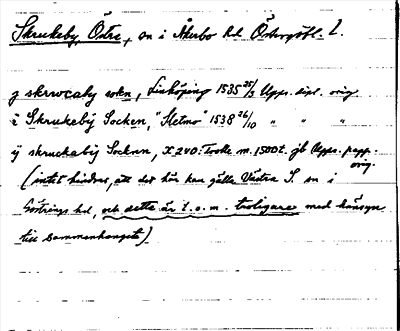 Skrukeby, Östra, sn i Åkerbo hd Östergötl. l.
j skrwcaby sokn, Linköping 1535 25/3 Upps. dipl. orig
i Skrukebij Socken, "Sletmo" 1538 26/10 " " "
ij skruckabij Socknn, X 240. m. 1500t. jb Upps. papp. orig.
(intet hindrar, att det här kan gälla Västra S. sn i
Göstrings hd, och detta är t.o.m. troligare med hänsyn
till sammanhanget)